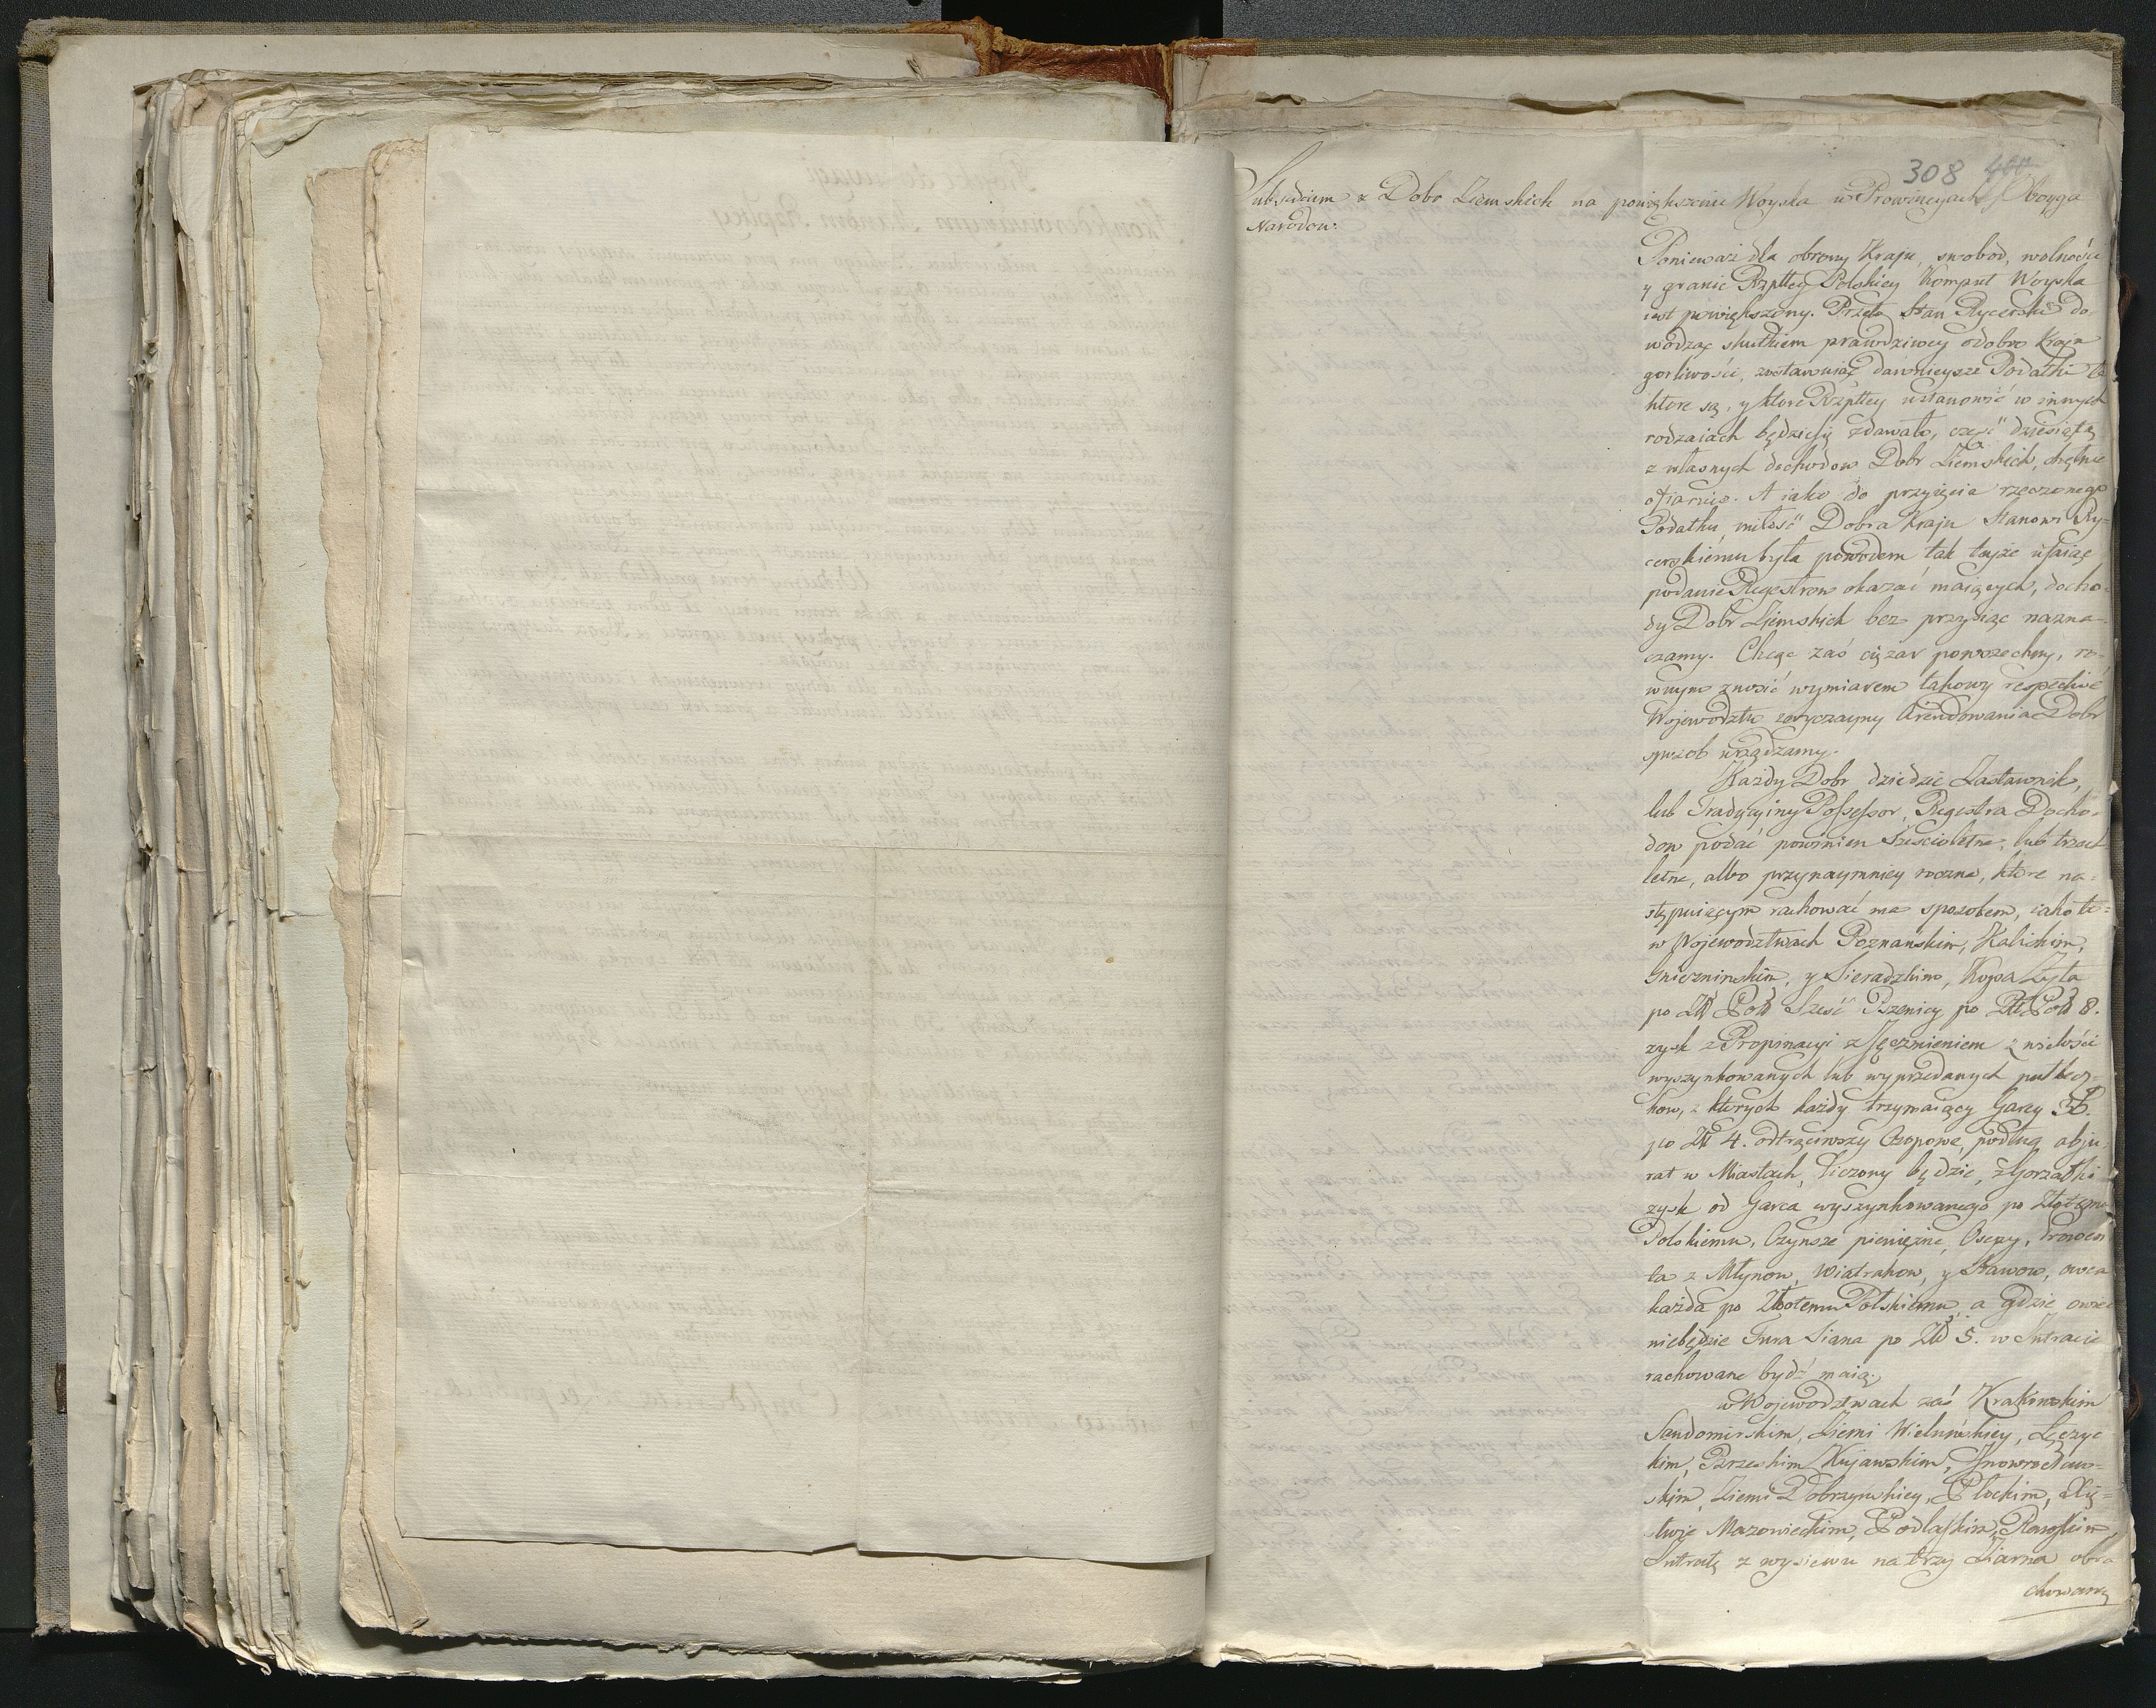 308
Subsidium z Dobr Ziemskich na powiększenie Woyska w Prowincyach Oboyga
Narodow.
Ponieważ dla obrony Kraju, swobod, wolności
y granic Rzpltey Polskiey Komput Woyska
iest powiększony. Przeto Stan Rycerski do-
wodząc skutkiem prawdziwey o dobro Kraju
gorliwości, zostawuiąc dawnieysze Podatki te
ktore są, y ktore Rzpltey ustanowić w innych
rodzaiach będzie się zdawało, część dziesiątą
z własnych dochodow Dobr Ziemskich, chętnie
ofiaruie. A iako do przyięcia rzeczonego
Podatku, miłość Dobra Kraju Stanowi Ry-
cerskiemu była powodem tak teyże ufaiąc
podanie Regestrow okazać maiących, docho-
dy Dobr Ziemskich bez przysiąg nazna-
czamy. Chcąc zaś ciężar powszechny, ro-
wnym znosić wymiarem takowy respective
Wojewodztw zwyczayny Arendowania Dobr
sposob urządzamy.
Każdy Dobr dziedzic Zastawnik,
lub Tradycyiny Possessor, Regestra Docho-
dow podać powinien Sześcioletne, lub trzech
letne, albo przynaymniey roczne, ktore na-
stępuiącym rachować ma sposobem, iako to:
w Wojewodztwach Poznańskim, Kaliskim,
Gniezninskim, y Sieradzkim, Kopa Żyta
po Zł Pol: Sześć Pszenicy po Zł Pol: 8.
zysk z Propinacyi z Jęczmieniem z wielości
wyszynkowanych lub wyprzedanych putbecz-
kow, z ktorych każdy trzymaiący Garcy 36.
po Zł 4. odtrąciwszy Czopowe, podług abju-
rat w Miastach, liczony będzie, z Gorzałki
zysk od Garca wyszynkowanego po Złotemu
Polskiemu, Czynsze pieniężne, Osepy, Prowen-
ta z Młynow, Wiatrakow, y Stawow, owca
każda po Złotemu Polskiemu, a gdzie owiec
niebędzie Fura Siana po Zł 5. w Intracie
rachowane bydź maią.
w Wojewodztwach zaś Krakowskim
Sandomirskim, Ziemi Wieluńskiey, Łęczyc-
kim, Brzeskim Kujawskim, Inowrocław-
skim, Ziemi Dobrzynskiey, Płockim, Xię-
stwie Mazowieckim, Podlaskim, Rawskim,
Intratę z wysiewu na trzy Ziarna obra-
chowaną